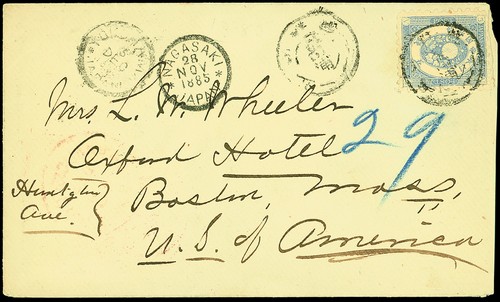 NAGASAKI
28
NOV
1885
JAPAN
Mrs. L. M. Wheeler
Oxford Hotel
29
Huntgtn
Ave.
Boston, Mass,
U. S. of America